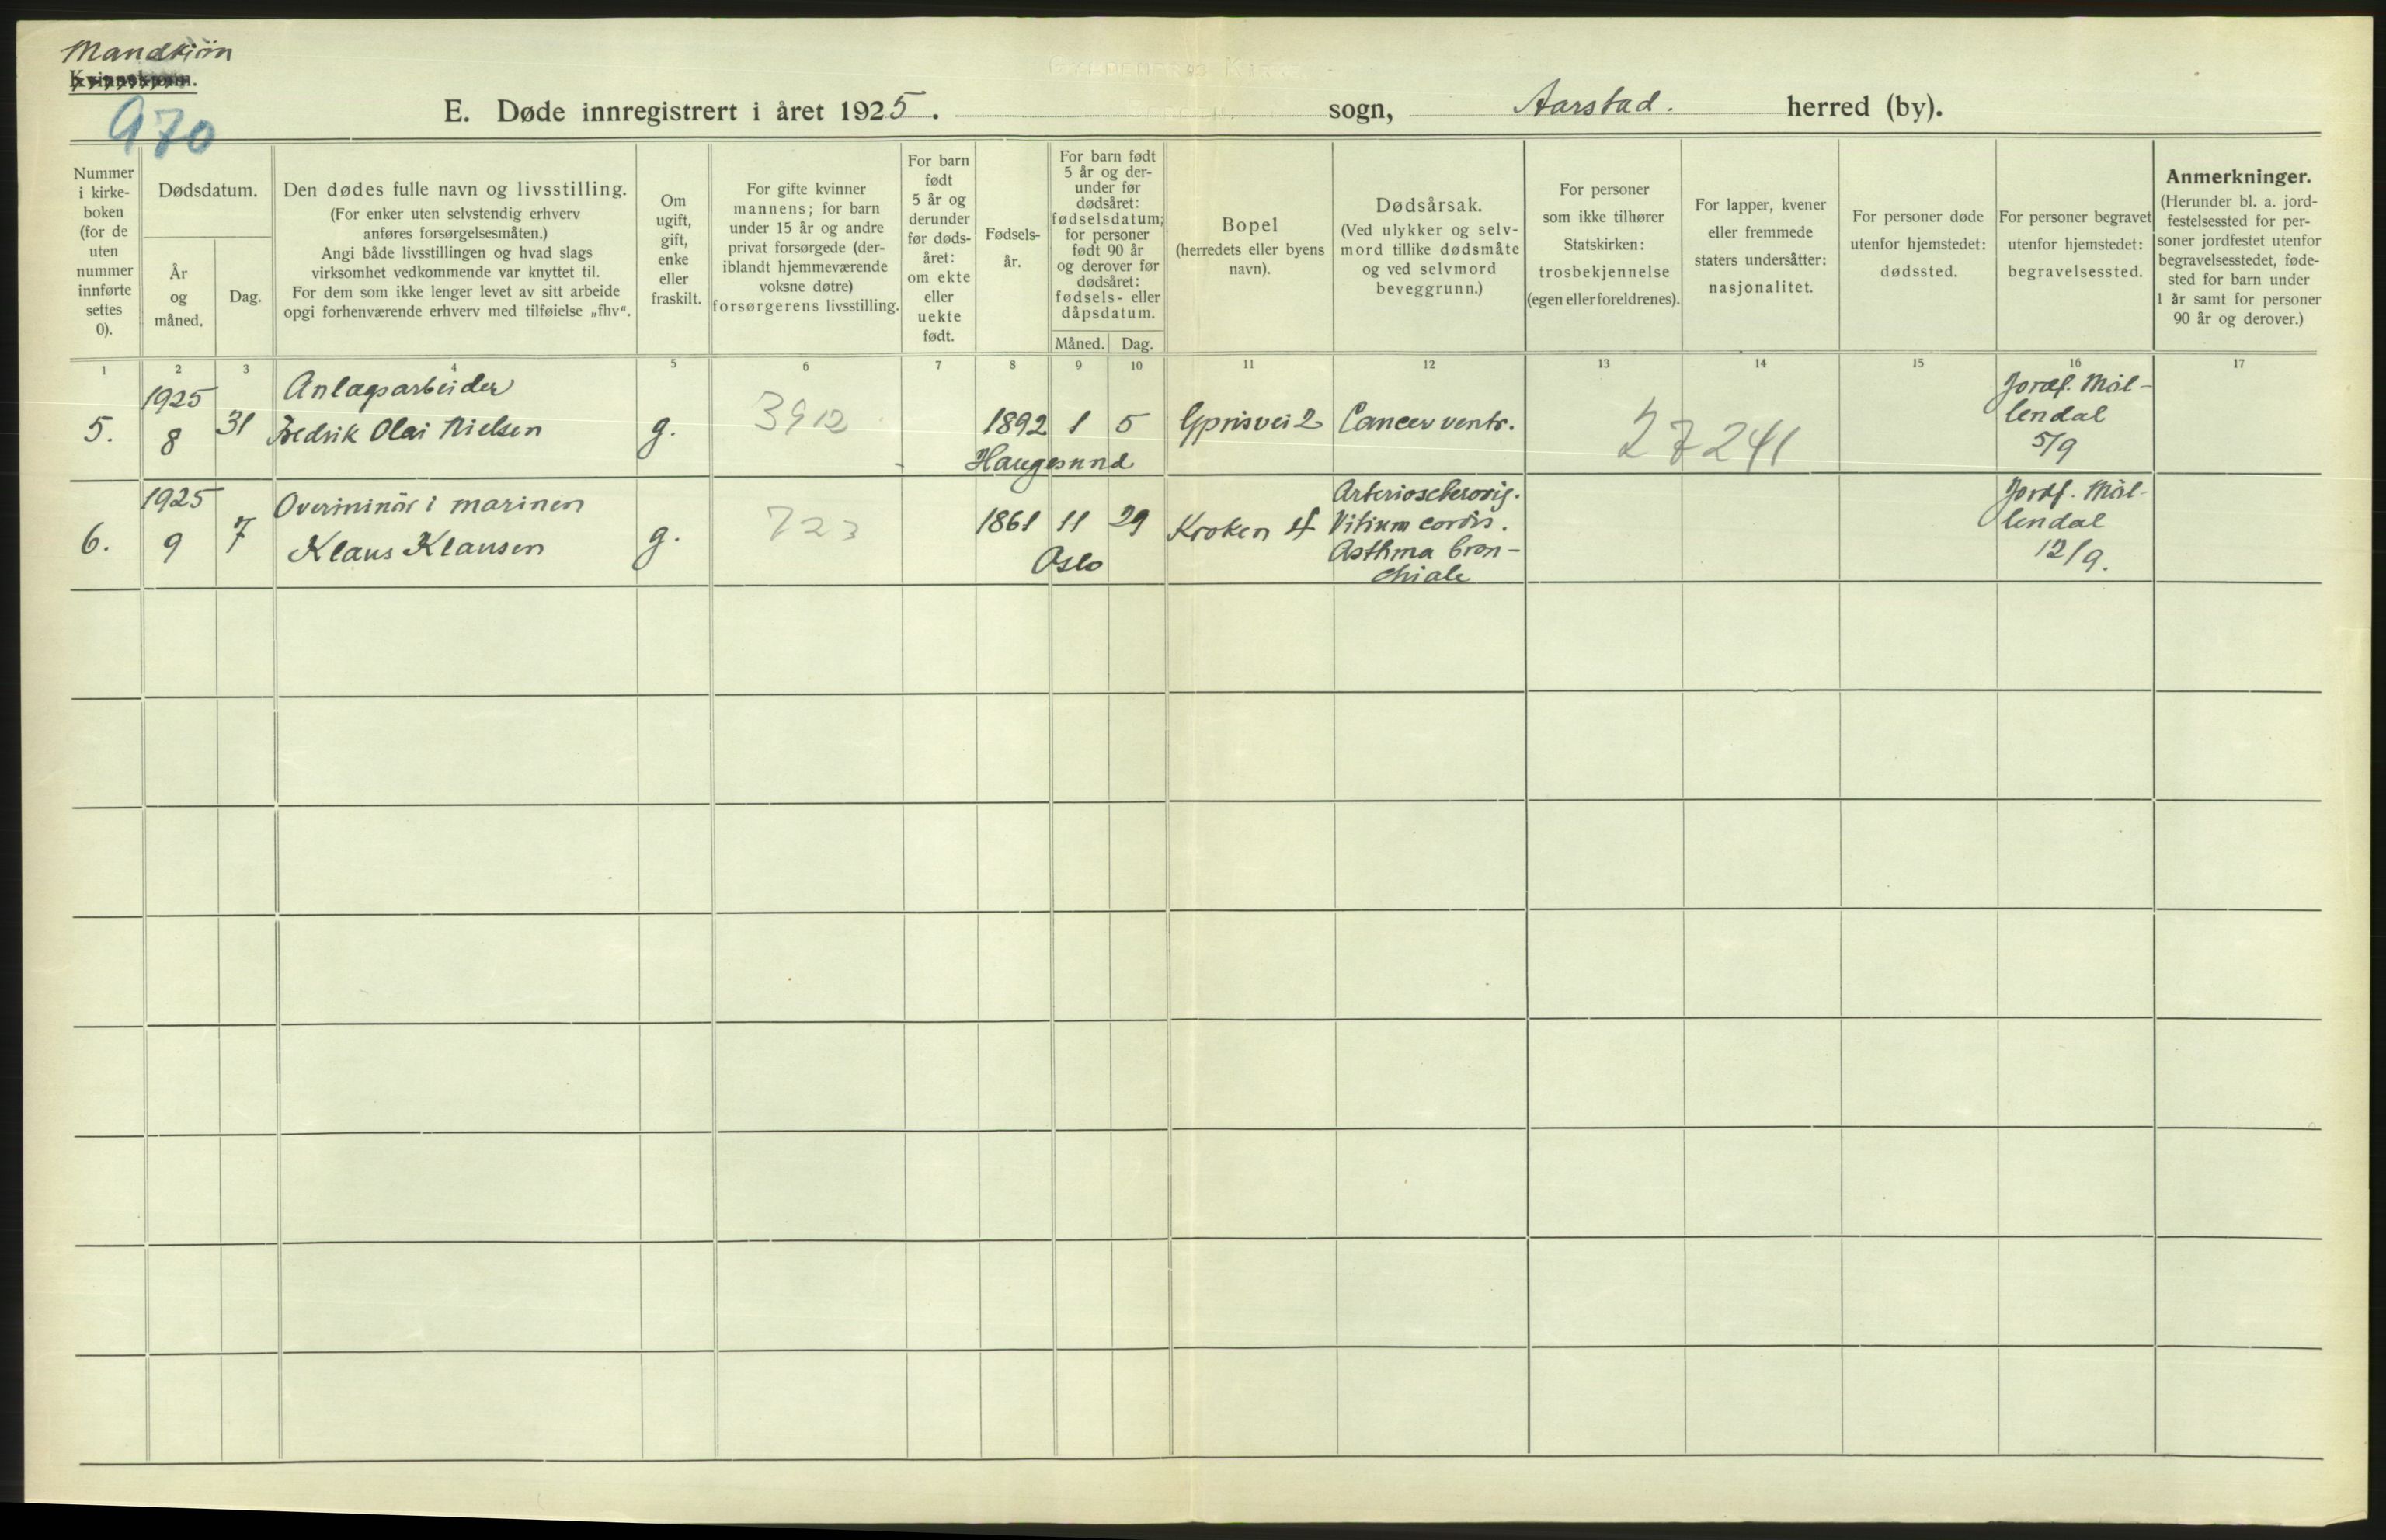 Mandkjøn
Kvinnekjønn.
970
E. Døde innregistrert i året 1925. sogn, Aarstad. herred (by).
Nummer i kirke-boken (for de uten nummer innførte settes 0).
Dødsdatum.
År og måned.
Dag.
Den dødes fulle navn og livsstilling.
(For enker uten selvstendig erhverv
anføres forsørgelsesmåten.)
Angi både livsstillingen og hvad slags
virksomhet vedkommende var knyttet til.
For dem som ikke lenger levet av sitt arbeide
opgi forhenværende erhverv med tilføielse „fhv“.
Om
ugift,
gift,
enke
eller
fraskilt.
For gifte kvinner
mannens; for barn
under 15 år og andre
privat forsørgede (der-
iblandt hjemmeværende
voksne døtre)
forsørgerens livsstilling.
For barn
født
5 år og
derunder
før døds-
året:
om ekte
eller
uekte
født.
Fødsels-
år.
For barn født
5 år og der-
under før
dødsåret:
fødselsdatum;
for personer
født 90 år
og derover før
dødsåret:
fødsels- eller
dåpsdatum.
Måned. Dag.
Bopel
(herredets eller byens
navn).
Dødsårsak.
(Ved ulykker og selv-
mord tillike dødsmåte
og ved selvmord
beveggrunn.)
For personer
som ikke tilhører
Statskirken:
trosbekjennelse
(egen eller foreldrenes).
For lapper, kvener
eller fremmede
staters undersåtter:
nasjonalitet.
For personer døde
utenfor hjemstedet:
dødssted.
For personer begravet
utenfor hjemstedet:
begravelsessted.
Anmerkninger.
(Herunder bl. a. jord-
festelsessted for per-
soner jordfestet utenfor
begravelsesstedet, føde-
sted for barn under
1 år samt for personer
90 år og derover.)
1 2 3 4 5 6 7 8 9 10 11 12 13 14 15 16 17
5.
1925
8
31
Anlægsarbeider
Fredrik Olai Nielsen
g.
3912
1892 1 5
Haugesund
2
Cancer ventr.
27241
Jordf. Møl-
lendal
5/9
6.
1925
9
7
Overminör i marinen
Klaus Klausen
g.
723
1861 11 29
Oslo
Kroken
Arteriosclerosis.
Vitium cordis.
Asthma bron-
chiale
Jordf. Møl-
lendal
12/9.